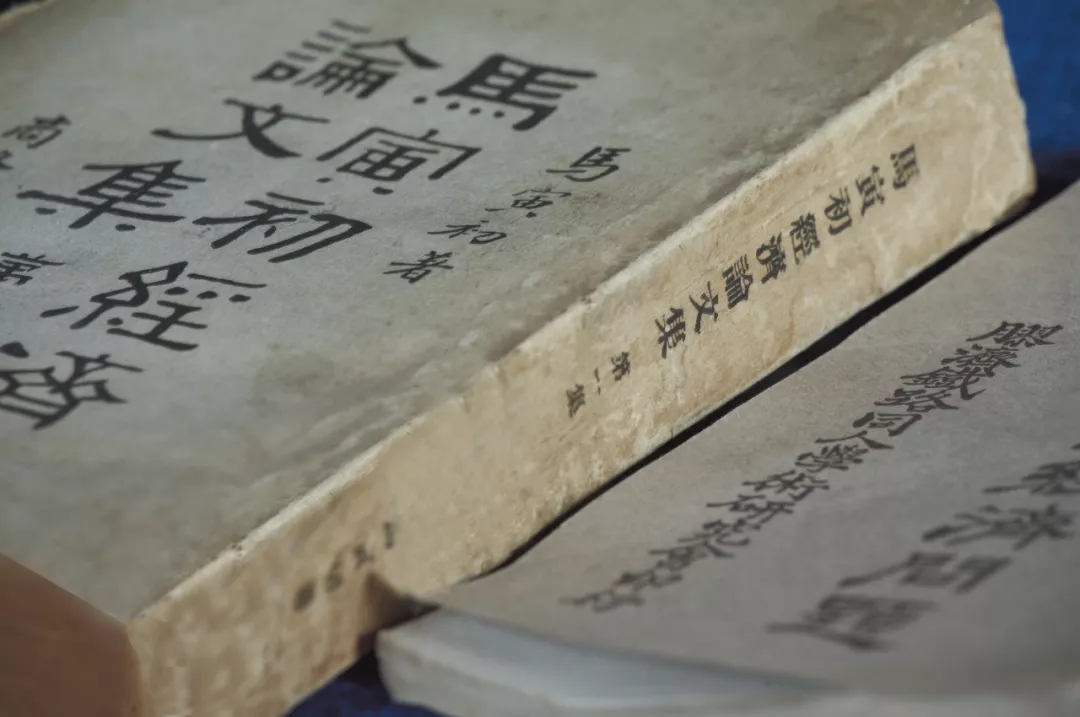 馬寅初著
馬寅初經濟
論文集
商
馬寅初經濟論文集 第一集
膠濟鐵路同人學術研究會
經濟問題